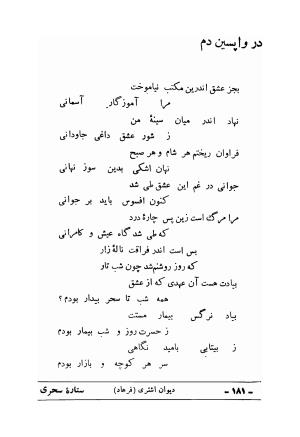 در واپسین دم
بجز عشق اندرین مکتب نیاموخت
مرا آموزگار آسمانی
نهاد اندر میان سینهٔ من
ز شور عشق داغی جاودانی
فراوان ریختم هر شام و هر صبح
نهان اشکی بدین سوز نهانی
جوانی در غم این عشق طی شد
کنون افسوس باید بر جوانی
مرا مرگ است زین پس چارهٔ درد
که طی شد گاه عیش و کامرانی
بس است اندر فراقت نالهٔ زار
که روز روشنم شد چون شب تار
بیادت هست آن عهدی که از عشق
همه شب تا سحر بیدار بودم ؟
بیاد نرگس بیمار مستت
ز حسرت روز و شب بیمار بودم
ز بیتابی بامید نگاهی
سر هر کوچه و بازار بودم
ستارهٔ سحری دیوان اشتری (فرهاد) - ۱۸۱ -